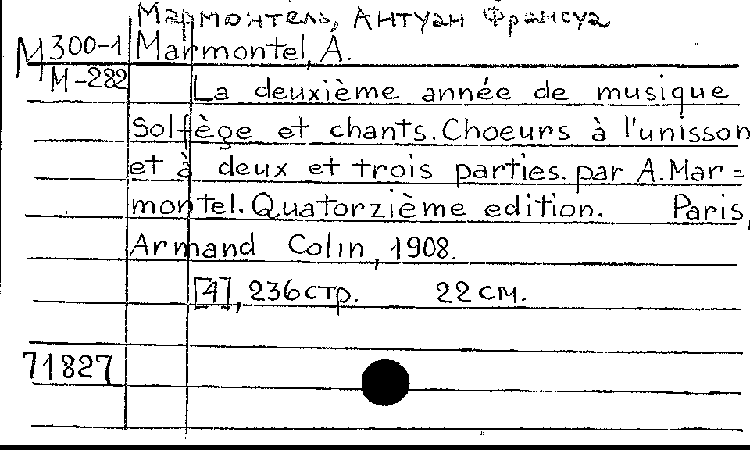 Мармонтель, Антуан Франсуа
М 300-1 Marmontel, A.
М-282
La deuxième année de musique
Solfège et chants. Choeurs à l'unisson
et à deux et trois parties. par A. Mar=
montel. Quatorzième edition. Paris,
Armand Colin, 1908.
[4], 236 стр. 22 см.
71827